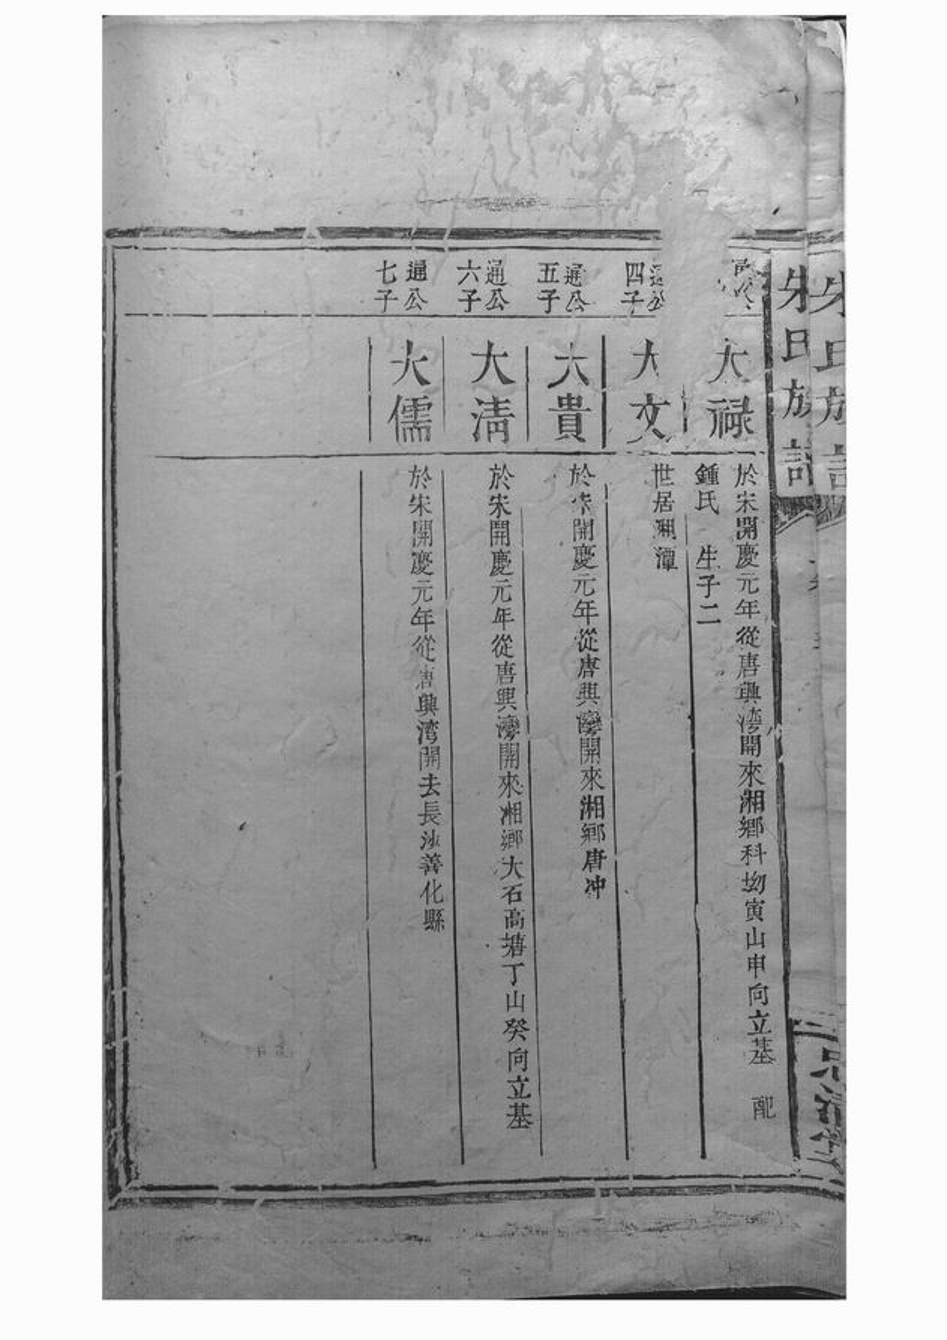 朱氏族譜
通公
四子
通公
五子
通公
六子
通公
七子
大祿
於宋開慶元年從唐興灣開來湘鄉科坳寅山申向立基　配
鍾氏　生子二
大文
世居湘潭
大貴
於宋開慶元年從唐興灣開來湘鄉唐冲
大清
於宋開慶元年從唐興灣開來湘鄉大石高塘丁山癸向立基
大儒
於宋開慶元年從唐興湾開去長沙善化縣